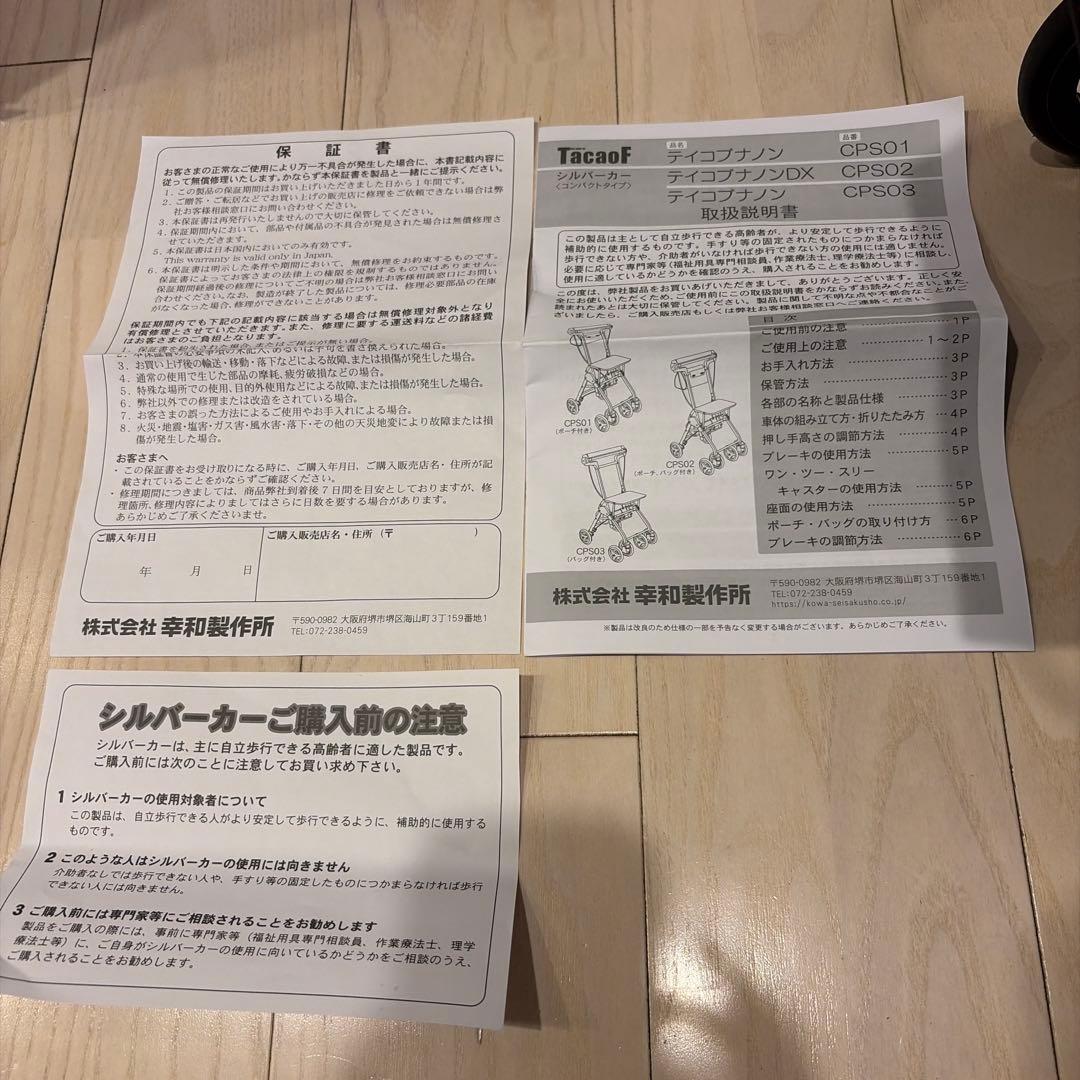 保証書
お客さまの正常なご使用により万一不具合が発生した場合に、本書記載内容に
従って無償修理いたします。かならず本保証書を製品と一緒にご提示ください。
1．この製品の保証期間はお買い上げいただきました日から1年間です。
2．ご贈答・ご転居などでお買い上げの販売店に修理をご依頼できない場合は弊
社お客様相談窓口にお問い合わせください。
3．本保証書は再発行いたしませんので大切に保管してください。
4．保証期間内において、部品や付属品の不具合が発見された場合は無償修理さ
せていただきます。
5．本保証書は日本国内においてのみ有効です。
This warranty is valid only in Japan.
6．本保証書は明示した条件や期間において、無償修理をお約束するものです。
保証書によってお客さまの法律上の権限を規制するものではありません。
保証期間経過後の修理についてご不明の場合は弊社お客様相談窓口にお問い
合わせください。なお、製造が終了した製品については、修理必要部品の在庫
がなくなった場合、修理ができないことがあります。
保証期間内でも下記の記載内容に該当する場合は無償修理対象外となり
有償修理とさせていただきます。また、修理に要する運送料などの諸経費
はお客さまのご負担となります。
1．保証書を紛失された場合、またはご提示が無い場合。
2．本保証書の必要事項の未記入、あるいは字句を書き換えられた場合。
3．お買い上げ後の輸送・移動・落下などによる故障、または損傷が発生した場合。
4．通常の使用で生じた部品の摩耗、疲労破損などの場合。
5．特殊な場所での使用、目的外使用などによる故障、または損傷が発生した場合。
6．弊社以外での修理または改造をされている場合。
7．お客さまの誤った方法によるご使用やお手入れによる場合。
8．火災・地震・塩害・ガス害・風水害・落下・その他の天災地変により故障または損
傷が発生した場合。
お客さまへ
・この保証書をお受け取りになる時に、ご購入年月日、ご購入販売店名・住所が記
載されていることをかならずご確認ください。
・修理期間につきましては、商品弊社到着後7日間を目安としておりますが、修
理箇所、修理内容によりましてはさらに日数を要する場合があります。
あらかじめご了承くださいませ。
ご購入年月日
年 月 日
ご購入販売店名・住所（〒 ）
株式会社 幸和製作所
〒590-0982 大阪府堺市堺区海山町3丁159番地1
TEL:072-238-0459
TacaoF
シルバーカー
〈コンパクトタイプ〉
品名 品番
テイコブナノン CPS01
テイコブナノンDX CPS02
テイコブナノン CPS03
取扱説明書
この製品は主として自立歩行できる高齢者が、より安定して歩行できるように
補助的に使用するものです。手すり等の固定されたものにつかまらなければ
歩行できない方や、介助者がいなければ歩行できない方の使用には適しません。
必要に応じて専門家等（福祉用具専門相談員、作業療法士、理学療法士等）に相談し、
使用に適しているかどうかを確認のうえ、購入されることをお勧めします。
この度は、弊社製品をお買いあげいただきまして、ありがとうございます。正しく安
全にお使いいただくため、ご使用前にこの取扱説明書をかならずお読みください。また、
読まれたあとは大切に保管してください。製品に関して不明な点や不都合などがご
ざいましたら、ご購入販売店もしくは弊社お客様相談窓口へご連絡ください。
目次
ご使用前の注意 1P
ご使用上の注意 1～2P
お手入れ方法 3P
保管方法 3P
各部の名称と製品仕様 3P
車体の組み立て方・折りたたみ方 4P
押し手高さの調節方法 4P
ブレーキの使用方法 5P
ワン・ツー・スリー
キャスターの使用方法 5P
座面の使用方法 5P
ポーチ・バッグの取り付け方 6P
ブレーキの調節方法 6P
CPS01
（ポーチ付き）
CPS02
（ポーチ、バッグ付き）
CPS03
（バッグ付き）
株式会社 幸和製作所
〒590-0982 大阪府堺市堺区海山町3丁159番地1
TEL:072-238-0459
https://kowa-seisakusho.co.jp/
※製品は改良のため仕様の一部を予告なく変更する場合がございます。あらかじめご了承ください。
シルバーカーご購入前の注意
シルバーカーは、主に自立歩行できる高齢者に適した製品です。
ご購入前には次のことに注意してお買い求め下さい。
1 シルバーカーの使用対象者について
この製品は、自立歩行できる人がより安定して歩行できるように、補助的に使用する
ものです。
2 このような人はシルバーカーの使用には向きません
介助者なしでは歩行できない人や、手すり等の固定したものにつかまらなければ歩行
できない人には向きません。
3 ご購入前には専門家等にご相談されることをお勧めします
製品をご購入の際には、事前に専門家等（福祉用具専門相談員、作業療法士、理学
療法士等）に、ご自身がシルバーカーの使用に向いているかどうかをご相談のうえ、
ご購入されることをお勧めします。